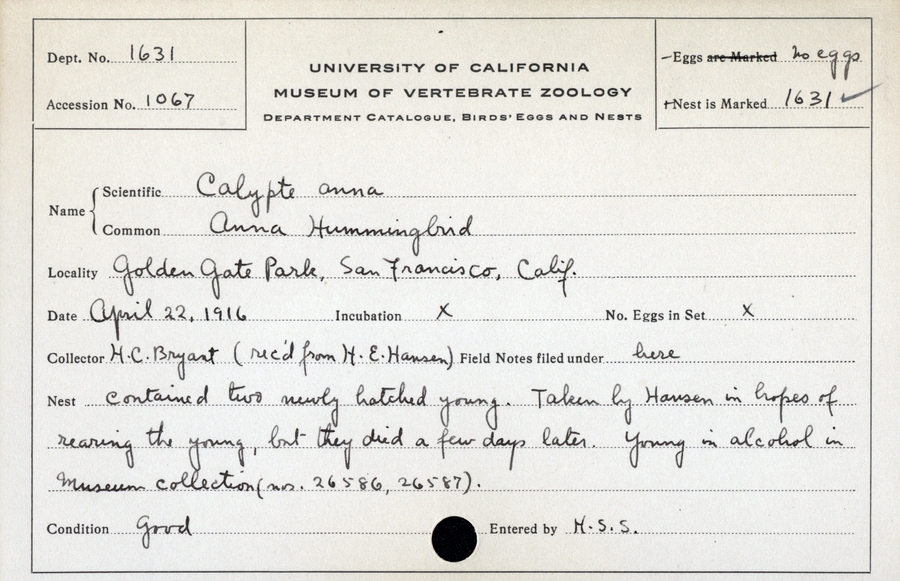 Dept. No. 1631
Accession No. 1067
UNIVERSITY OF CALIFORNIA
MUSEUM OF VERTEBRATE ZOOLOGY
DEPARTMENT CATALOGUE, BIRDS' EGGS AND NESTS
Eggs are Marked no eggs
Nest is Marked 1631 ✓
Name { Scientific Calypte anna
Common Anna Hummingbird
Locality Golden Gate Park, San Francisco, Calif.
Date April 22, 1916 Incubation X No. Eggs in Set X
Collector H.C. Bryant (rec'd from H.E. Hansen) Field Notes filed under here
Nest contained two newly hatched young. Taken by Hansen in hopes of
rearing the young, but they died a few days later. Young in alcohol in
Museum collection (nos. 26586, 26587).
Condition Good Entered by H.S.S.